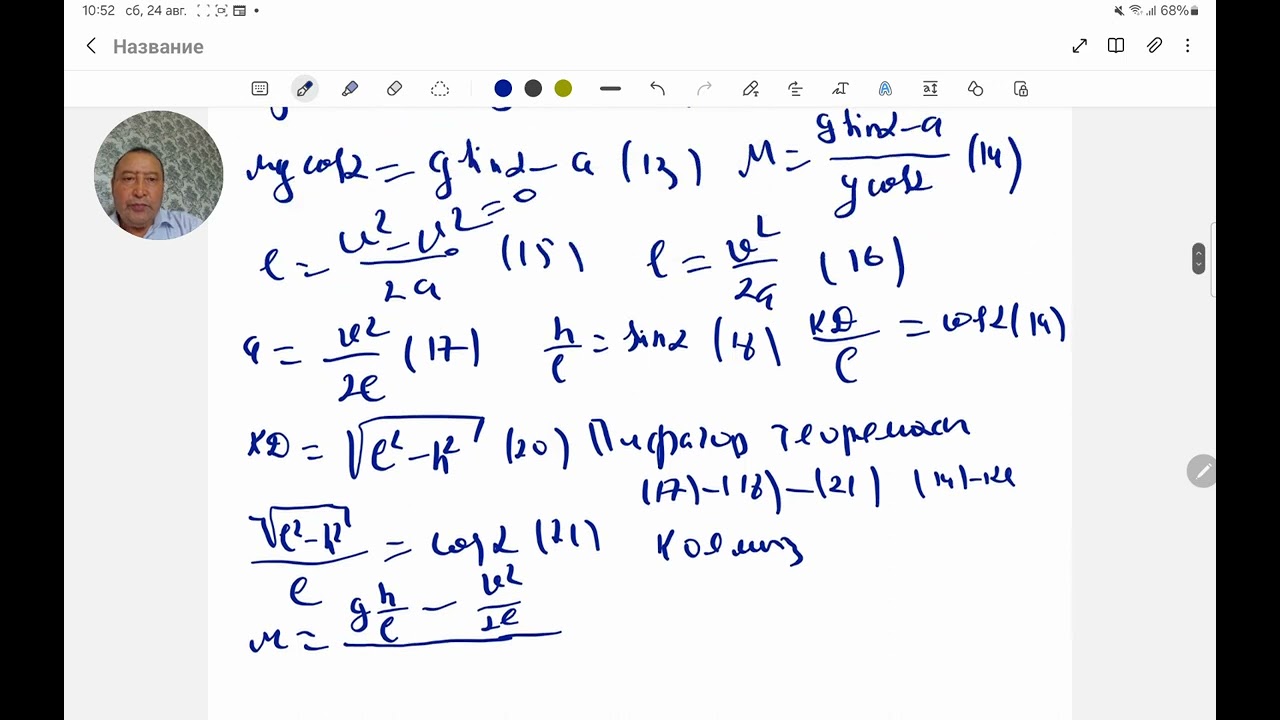 10:52 сб, 24 авг. 68%
Название
μg cosα = g sinα – a (13) μ = (g sinα – a)/(g cosα) (14)
ℓ = (υ² – υ₀² = 0)/(2a) (15) ℓ = υ²/(2a) (16)
a = υ²/(2ℓ) (17) h/ℓ = sinα (18) KD/ℓ = cosα (19)
KD = √(ℓ² – h²) (20) Пифагор теоремаси
(17) – (18) – (21) (14) – га
√(ℓ² – h²)/ℓ = cosα (21) қоямиз
μ = g h/ℓ – υ²/(2ℓ)